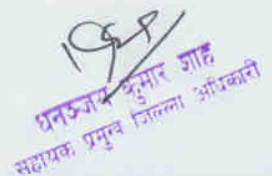 धनञ्जय कुमार शाह
सहायक प्रमुख जिल्ला अधिकारी